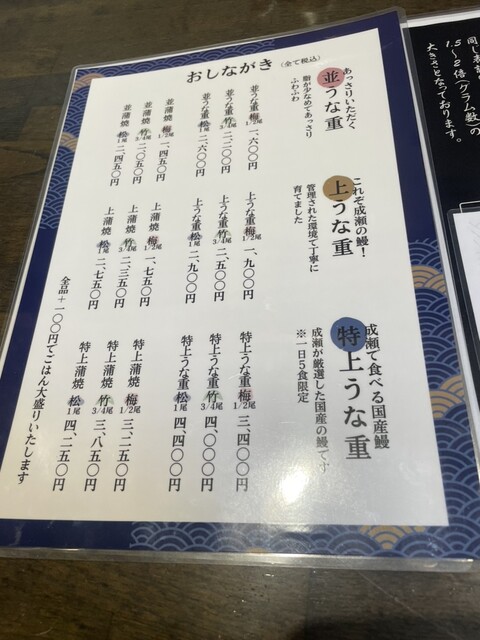 おしながき（全て税込）
あっさりいただく
並うな重
脂が少なめであっさり
ふわふわ
並うな重 梅 1/2尾 一、六〇〇円
並うな重 竹 3/4尾 二、二〇〇円
並うな重 松 1尾 二、六〇〇円
並蒲焼 梅 1/2尾 一、四五〇円
並蒲焼 竹 3/4尾 二、〇五〇円
並蒲焼 松 1尾 二、四五〇円
これぞ成瀬の鰻！
上うな重
管理された環境で丁寧に
育てました
上うな重 梅 1/2尾 一、九〇〇円
上うな重 竹 3/4尾 二、五〇〇円
上うな重 松 1尾 二、九〇〇円
上蒲焼 梅 1/2尾 一、七五〇円
上蒲焼 竹 3/4尾 二、三五〇円
上蒲焼 松 1尾 二、七五〇円
成瀬で食べる国産鰻
特上うな重
成瀬が厳選した国産の鰻です
※一日5食限定
特上うな重 梅 1/2尾 三、四〇〇円
特上うな重 竹 3/4尾 四、〇〇〇円
特上うな重 松 1尾 四、四〇〇円
特上蒲焼 梅 1/2尾 三、二五〇円
特上蒲焼 竹 3/4尾 三、八五〇円
特上蒲焼 松 1尾 四、二五〇円
全品＋一〇〇円でごはん大盛りいたします
1.5〜2倍（グラム数）の
大きさとなっております。